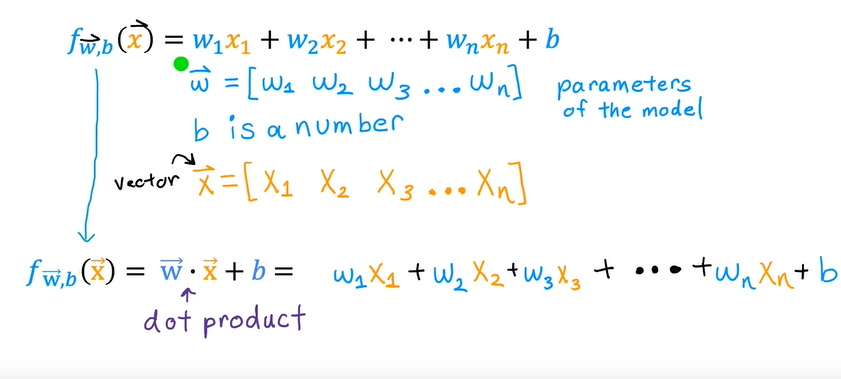 f_{\vec{w},b}(\vec{x}) = w₁x₁ + w₂x₂ + ⋯ + wₙxₙ + b
\vec{w} = [w₁ w₂ w₃ ... wₙ] parameters
of the model
b is a number
vector \vec{x} = [x₁ x₂ x₃ ... xₙ]
f_{\vec{w},b}(\vec{x}) = \vec{w} · \vec{x} + b = w₁x₁ + w₂x₂ + w₃x₃ + ··· + wₙxₙ + b
dot product